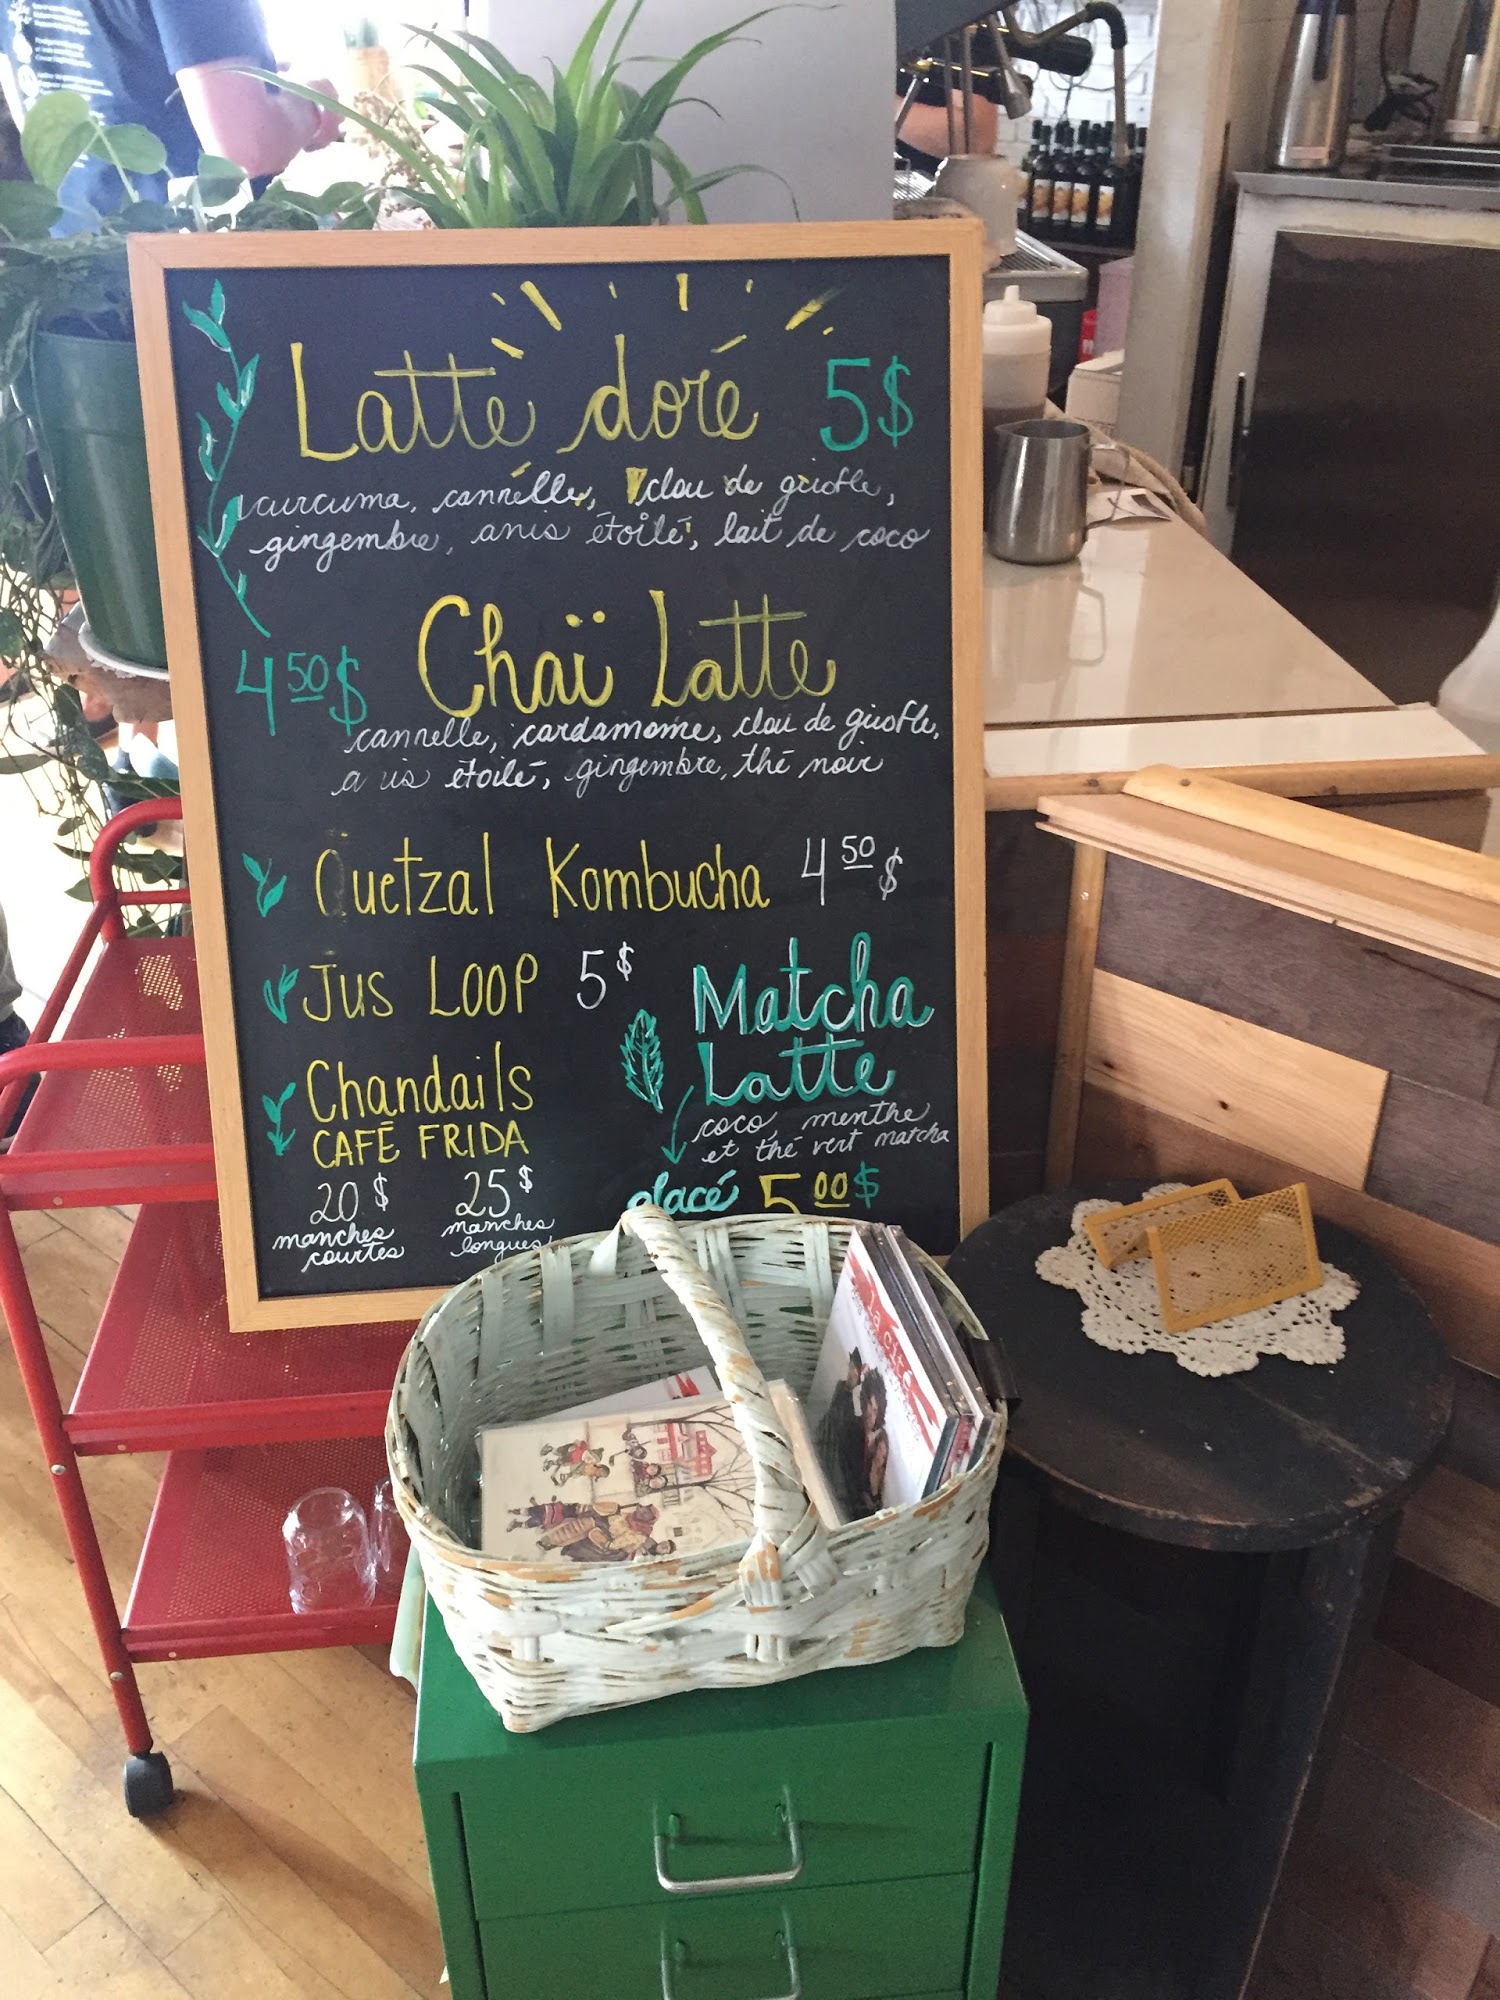 Latte doré 5$
curcuma, cannelle, clou de girofle,
gingembre, anis étoilé, lait de coco
4 50 $ Chaï Latte
cannelle, cardamome, clou de girofle,
a is étoilé, gingembre, thé noir
Quetzal Kombucha 4 50 $
Jus LOOP 5$
Matcha
Latte
coco, menthe
et thé vert matcha
glacé 5 00 $
Chandails
CAFÉ FRIDA
20$ 25$
manches manches
courtes longues
la cité